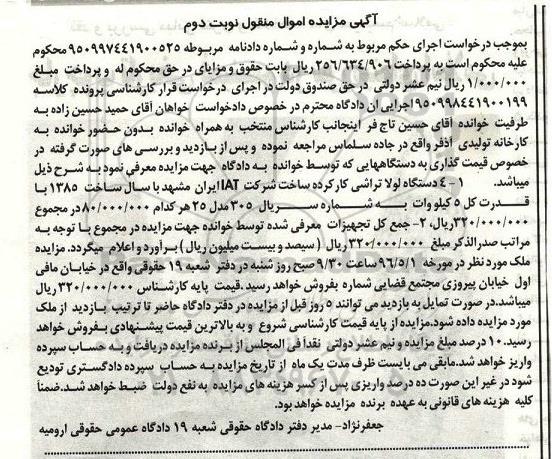 آگهی مزایده اموال منقول نوبت دوم
بموجب درخواست اجرای حکم مربوط به شماره و شماره دادنامه مربوطه ۹۵۰۹۹۷۴۴۱۹۰۰۵۲۵ محکوم
علیه محکوم است به پرداخت ۲۵۶/۶۳۴/۹۰۶ ریال بابت حقوق و مزایای در حق محکوم له و پرداخت مبلغ
۱/۰۰۰/۰۰۰ ریال نیم عشر دولتی در حق صندوق دولت در اجرای درخواست قرار کارشناسی پرونده کلاسه
۹۵۰۹۹۸۴۴۱۹۰۰۱۹۹ اجرایی ان دادگاه محترم در خصوص دادخواست خواهان آقای حمید حسین زاده به
طرفیت خوانده آقای حسین تاج فر اینجانب کارشناس منتخب به همراه خوانده بدون حضور خوانده به
کارخانه تولیدی آذفر واقع در جاده سلماس مراجعه نموده و پس از بازدید و بررسی های صورت گرفته در
خصوص قیمت گذاری به دستگاههایی که توسط خوانده به دادگاه جهت مزایده معرفی نمود به شرح ذیل
میباشد. ۱-۴ دستگاه لولا تراشی کارکرده ساخت شرکت IAT ایران مشهد با سال ساخت ۱۳۸۵ با
قدرت کل ۵ کیلو وات به شماره سریال ۳۰۵ مدل ۲۵ هر کدام ۸۰/۰۰۰/۰۰۰ در مجموع
۳۲۰/۰۰۰/۰۰۰ ریال، ۲- جمع کل تجهیزات معرفی شده توسط خوانده جهت مزایده در مجموع با توجه به
مراتب صدرالذکر مبلغ ۳۲۰/۰۰۰/۰۰۰ ریال ( سیصد و بیست میلیون ریال ) برآورد و اعلام میگردد. مزایده
ملک مورد نظر در مورخه ۹۶/۵/۱ ساعت ۹/۳۰ صبح روز شنبه در دفتر شعبه ۱۹ حقوقی واقع در خیابان مافی
اول خیابان پیروزی مجتمع قضایی شماره بفروش خواهد رسید. قیمت پایه کارشناس ۳۲۰/۰۰۰/۰۰۰ ریال
میباشد. در صورت تمایل به بازدید می توانند ۵ روز قبل از مزایده در دفتر دادگاه حاضر تا ترتیب بازدید از ملک
مورد مزایده داده شود. مزایده از پایه قیمت کارشناسی شروع و به بالاترین قیمت پیشنهادی بفروش خواهد
رسید. ۱۰ درصد مبلغ مزایده و نیم عشر دولتی نقداً فی المجلس از برنده مزایده دریافت و به حساب سپرده
واریز خواهد شد. مابقی می بایست ظرف مدت یک ماه از تاریخ مزایده به حساب سپرده دادگستری تودیع
شود در غیر این صورت ده درصد واریزی پس از کسر هزینه های مزایده به نفع دولت ضبط خواهد شد. ضمناً
کلیه هزینه های قانونی به عهده برنده مزایده خواهد بود.
جعفرنژاد- مدیر دفتر دادگاه حقوقی شعبه ۱۹ دادگاه عمومی حقوقی ارومیه